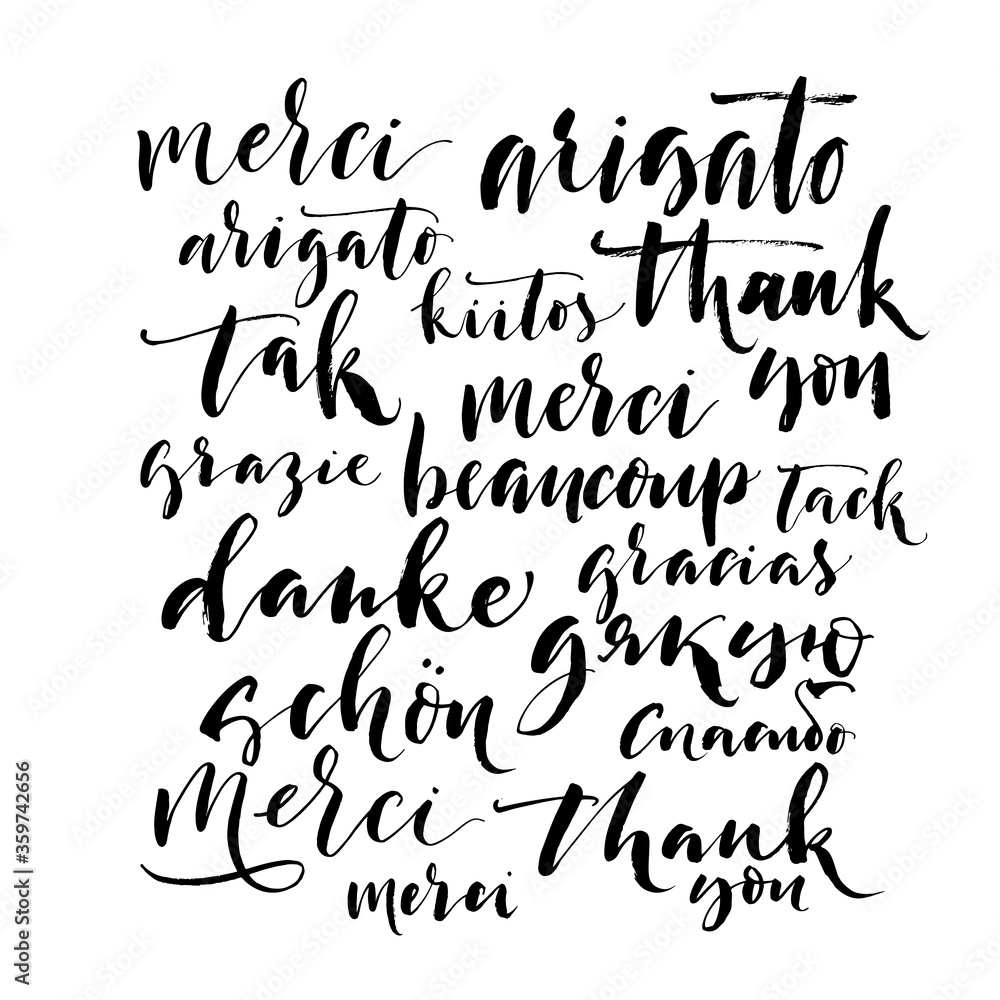 merci arigato
arigato
kiitos thank
you
tak
merci
beaucoup
grazie
tack
danke
schön
gracias
дякую
спасибо
Merci
thank
you
merci
Adobe Stock | #359742656
Adobe Stock